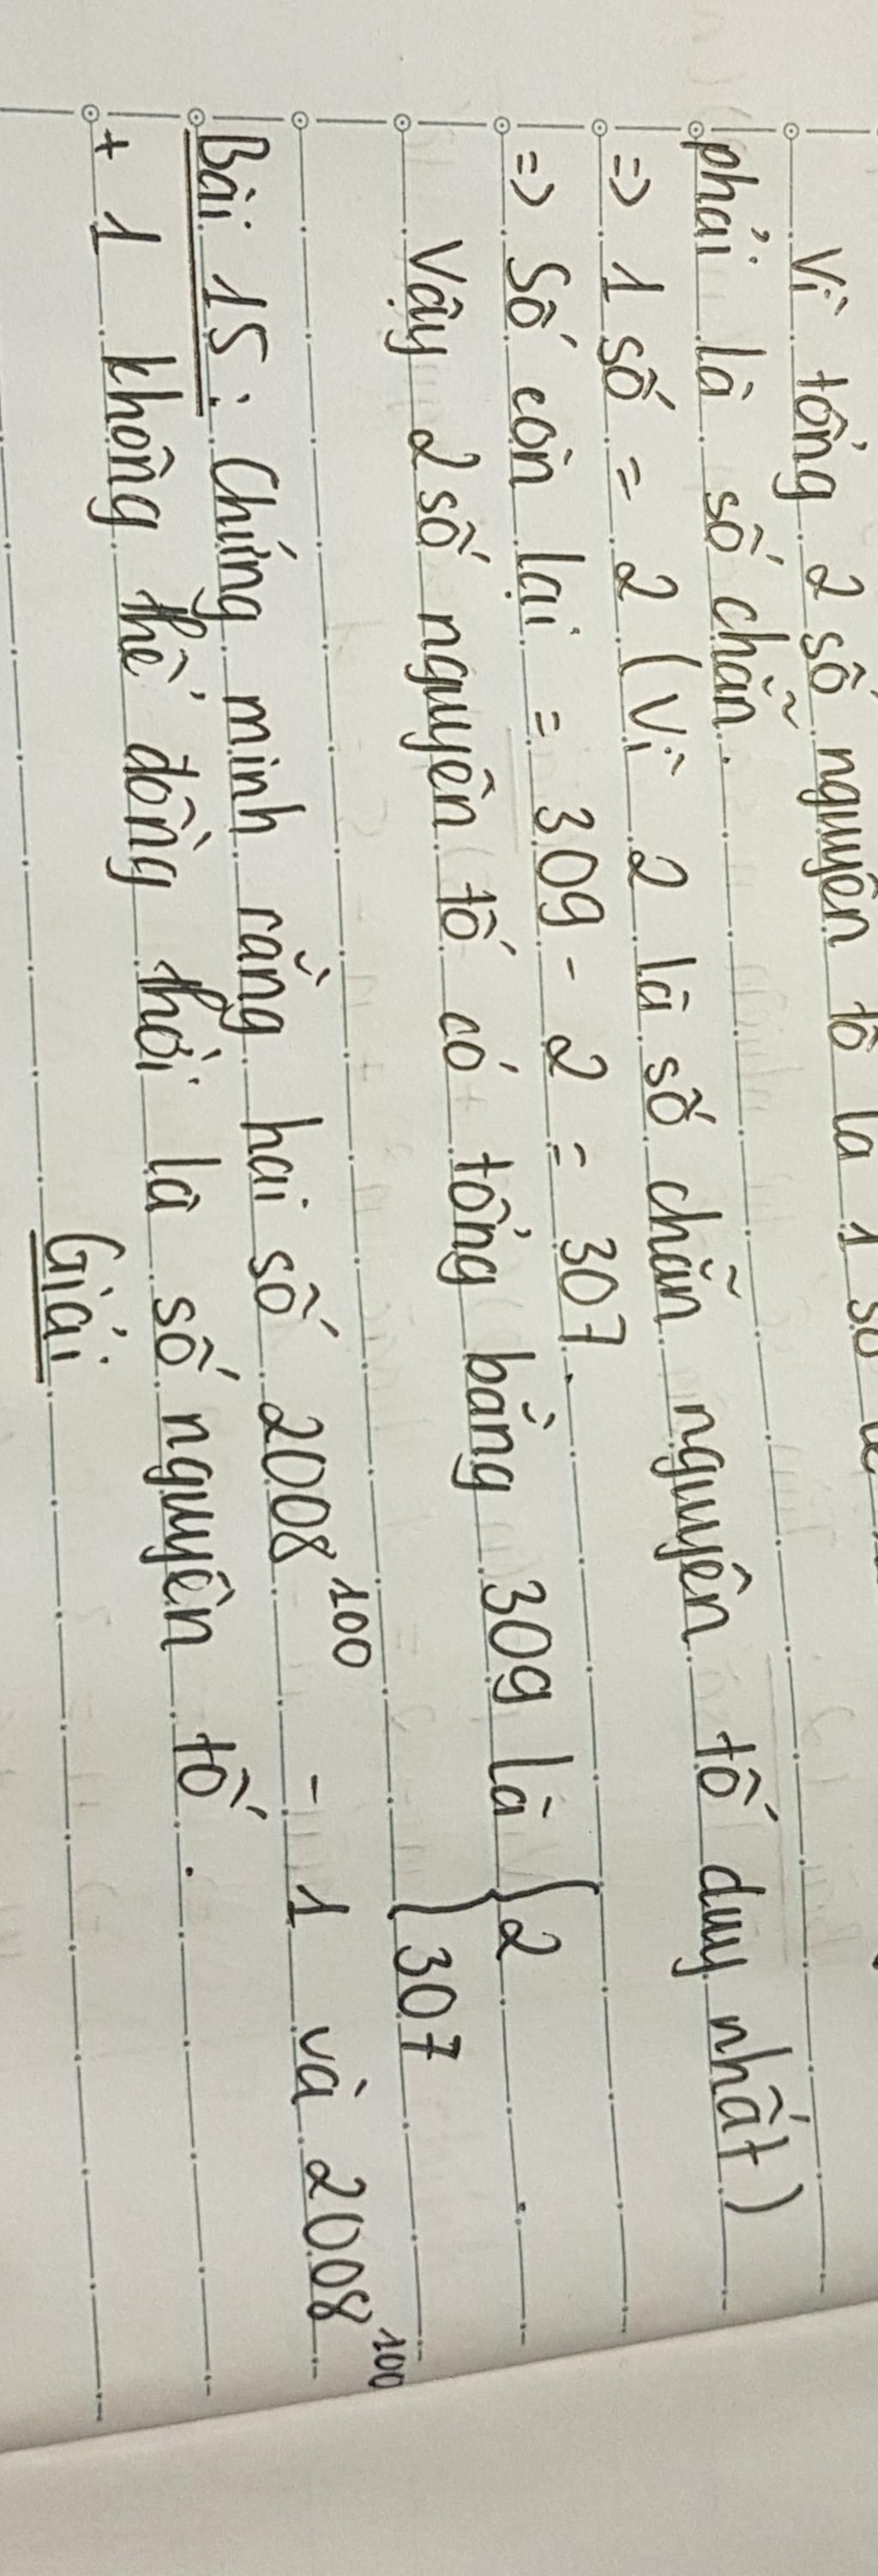 Vì tổng 2 số nguyên tố là 1 số
phải là số chẵn.
=> 1 số = 2 (Vì 2 là số chẵn nguyên tố duy nhất)
=> Số còn lại = 309 - 2 = 307.
Vậy 2 số nguyên tố có tổng bằng 309 là { 2
{ 307
Bài 15: Chứng minh rằng hai số 2008^100 - 1 và 2008^100
+ 1 không thể đồng thời là số nguyên tố.
Giải